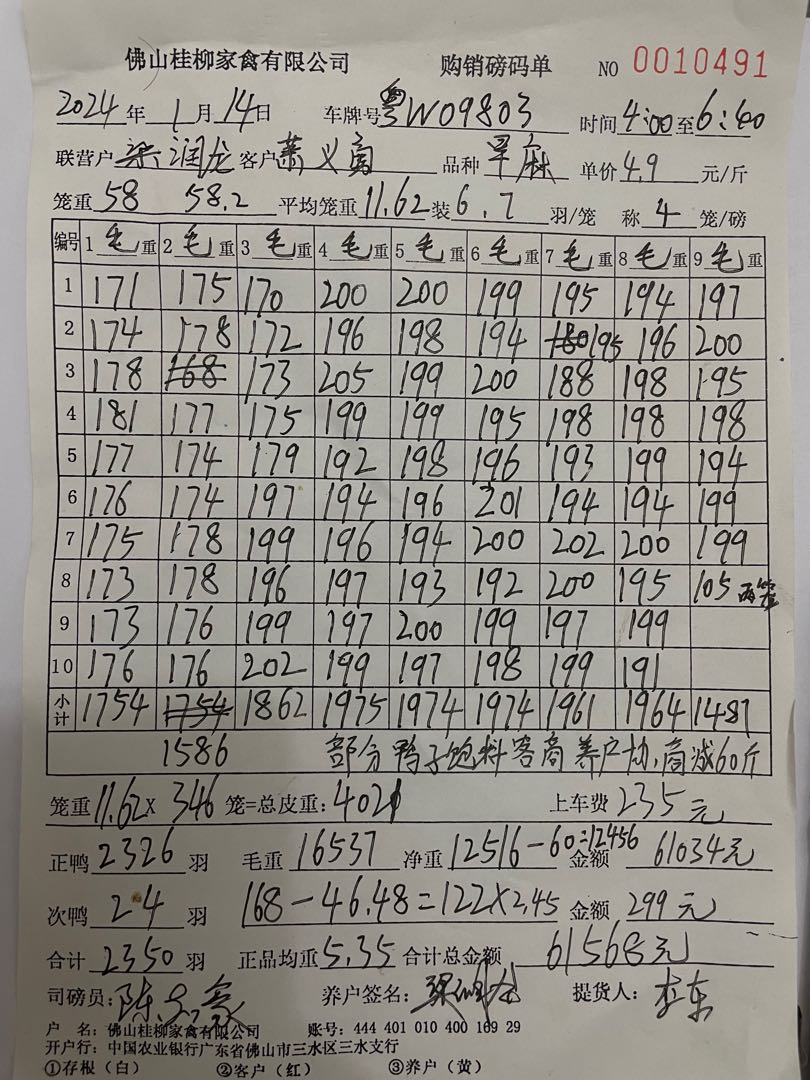 佛山桂柳家禽有限公司 购销磅码单 NO 0010491
2024年 1月14日 车牌号粤W09803 时间4:00至6:40
联营户梁润龙 客户萧义 品种旱麻 单价4.9元/斤
笼重58 58.2 平均笼重11.62装6.7羽/笼 称4笼/磅
编号 1毛重 2毛重 3毛重 4毛重 5毛重 6毛重 7毛重 8毛重 9毛重
1 171 175 170 200 200 199 195 194 197
2 174 178 172 196 198 194 180 195 196 200
3 178 168 173 205 199 200 188 198 195
4 181 177 175 199 199 195 198 198 198
5 177 174 179 192 198 196 193 199 194
6 176 174 197 194 196 201 194 194 199
7 175 178 199 196 194 200 202 200 199
8 173 178 196 197 193 192 200 195 105 两笼
9 173 176 199 197 200 199 197 199
10 176 176 202 199 197 198 199 191
小计 1754 1754 1862 1975 1974 1974 1961 1964 1487
1586 部分鸭子饱料客商养户协商减60斤
笼重11.62X346笼=总皮重:4021 上车费235元
正鸭2326羽 毛重16537 净重12516-60=12456 金额61034元
次鸭24羽 168-46.48=122X2.45 金额299元
合计2350羽 正品均重5.35 合计总金额61568元
司磅员:陈 养户签名:梁润龙 提货人:李东
户 名:佛山桂柳家禽有限公司 账号:444 401 010 400 169 29
开户行:中国农业银行广东省佛山市三水区三水支行
①存根(白) ②客户(红) ③养户(黄)